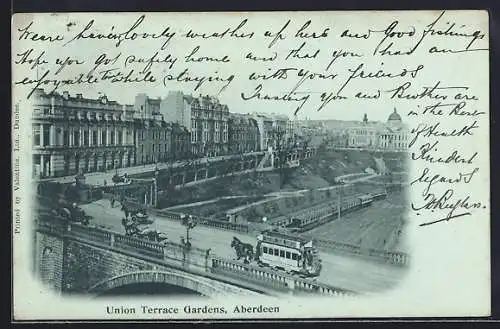 We are haveing lovely weather up here and Good fishings
Hope you got safely home and that you had an
enjoyable while staying with your friends
Trusting you and Brother are
in the Best
of Health
Kindest
regards
Union Terrace Gardens, Aberdeen
Printed by Valentine, Ltd., Dundee.